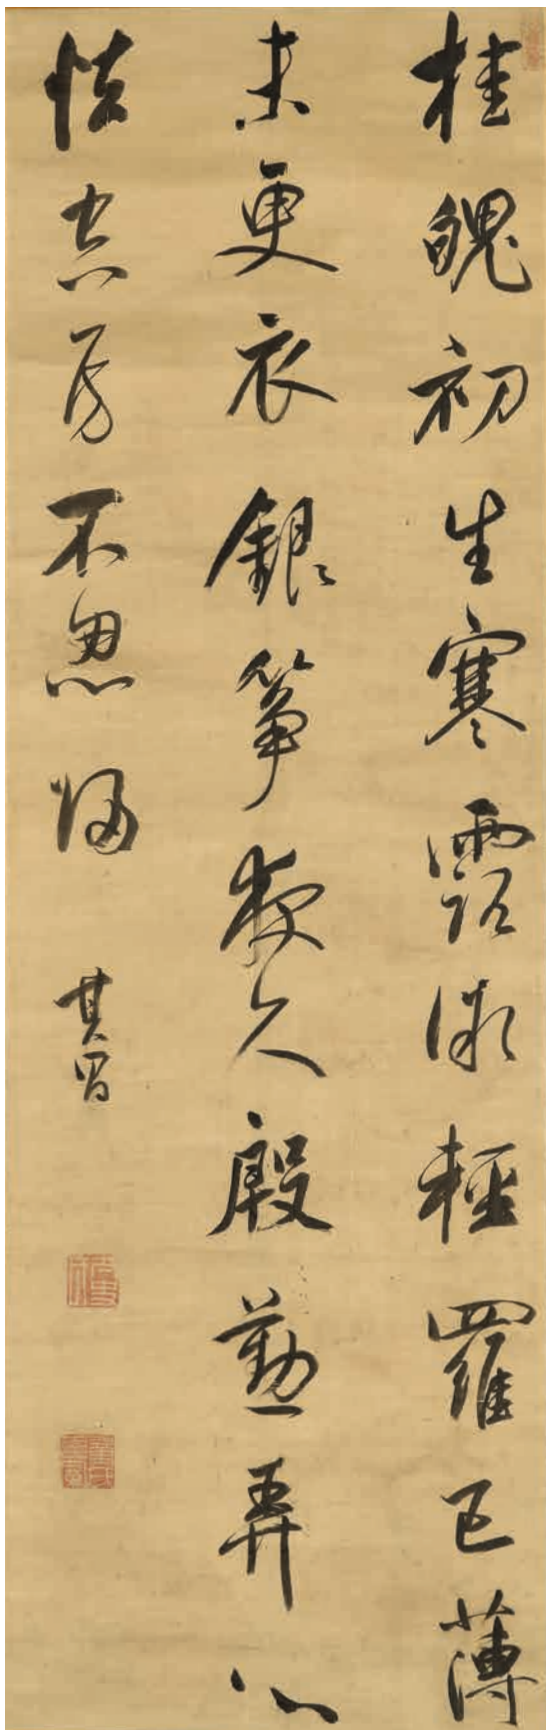 桂魄初生寒露微輕羅已薄
未更衣銀箏夜久殷勤弄心
怯空房不忍歸
其昌